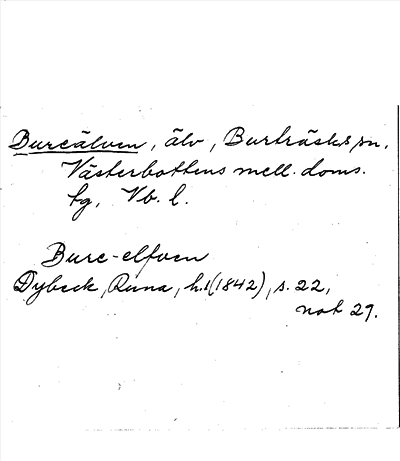 Bureälven, älv, Burträsks sn.
Västerbottens mell. doms.
tg, Vb. l.
Bure-elfven
Dybeck, Runa, h.1(1842), s. 22,
not 29.